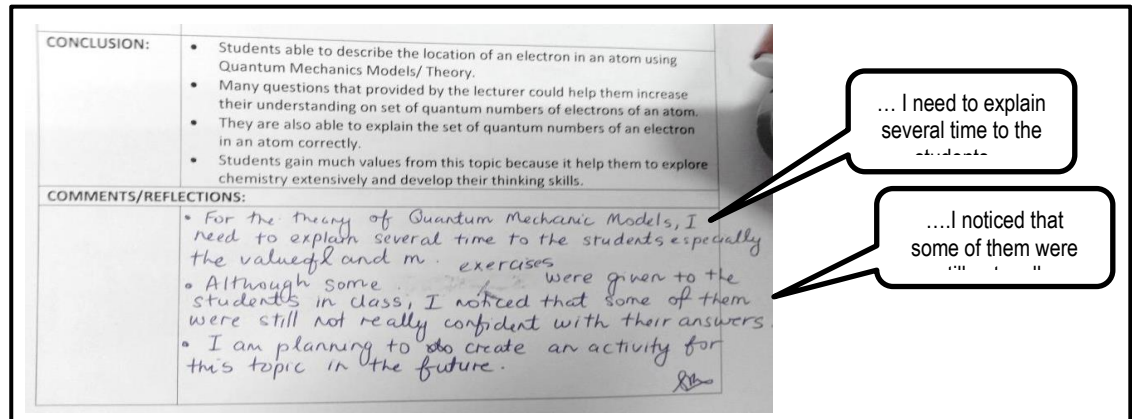 CONCLUSION:
• Students able to describe the location of an electron in an atom using
Quantum Mechanics Models/ Theory.
• Many questions that provided by the lecturer could help them increase
their understanding on set of quantum numbers of electrons of an atom.
• They are also able to explain the set of quantum numbers of an electron
in an atom correctly.
• Students gain much values from this topic because it help them to explore
chemistry extensively and develop their thinking skills.
COMMENTS/REFLECTIONS:
• For the theory of Quantum Mechanic Models, I
need to explain several time to the students especially
the value of l and m.
• Although some exercises were given to the
students in class, I noticed that some of them
were still not really confident with their answers.
• I am planning to create an activity for
this topic in the future.
... I need to explain
several time to the
students
....I noticed that
some of them were